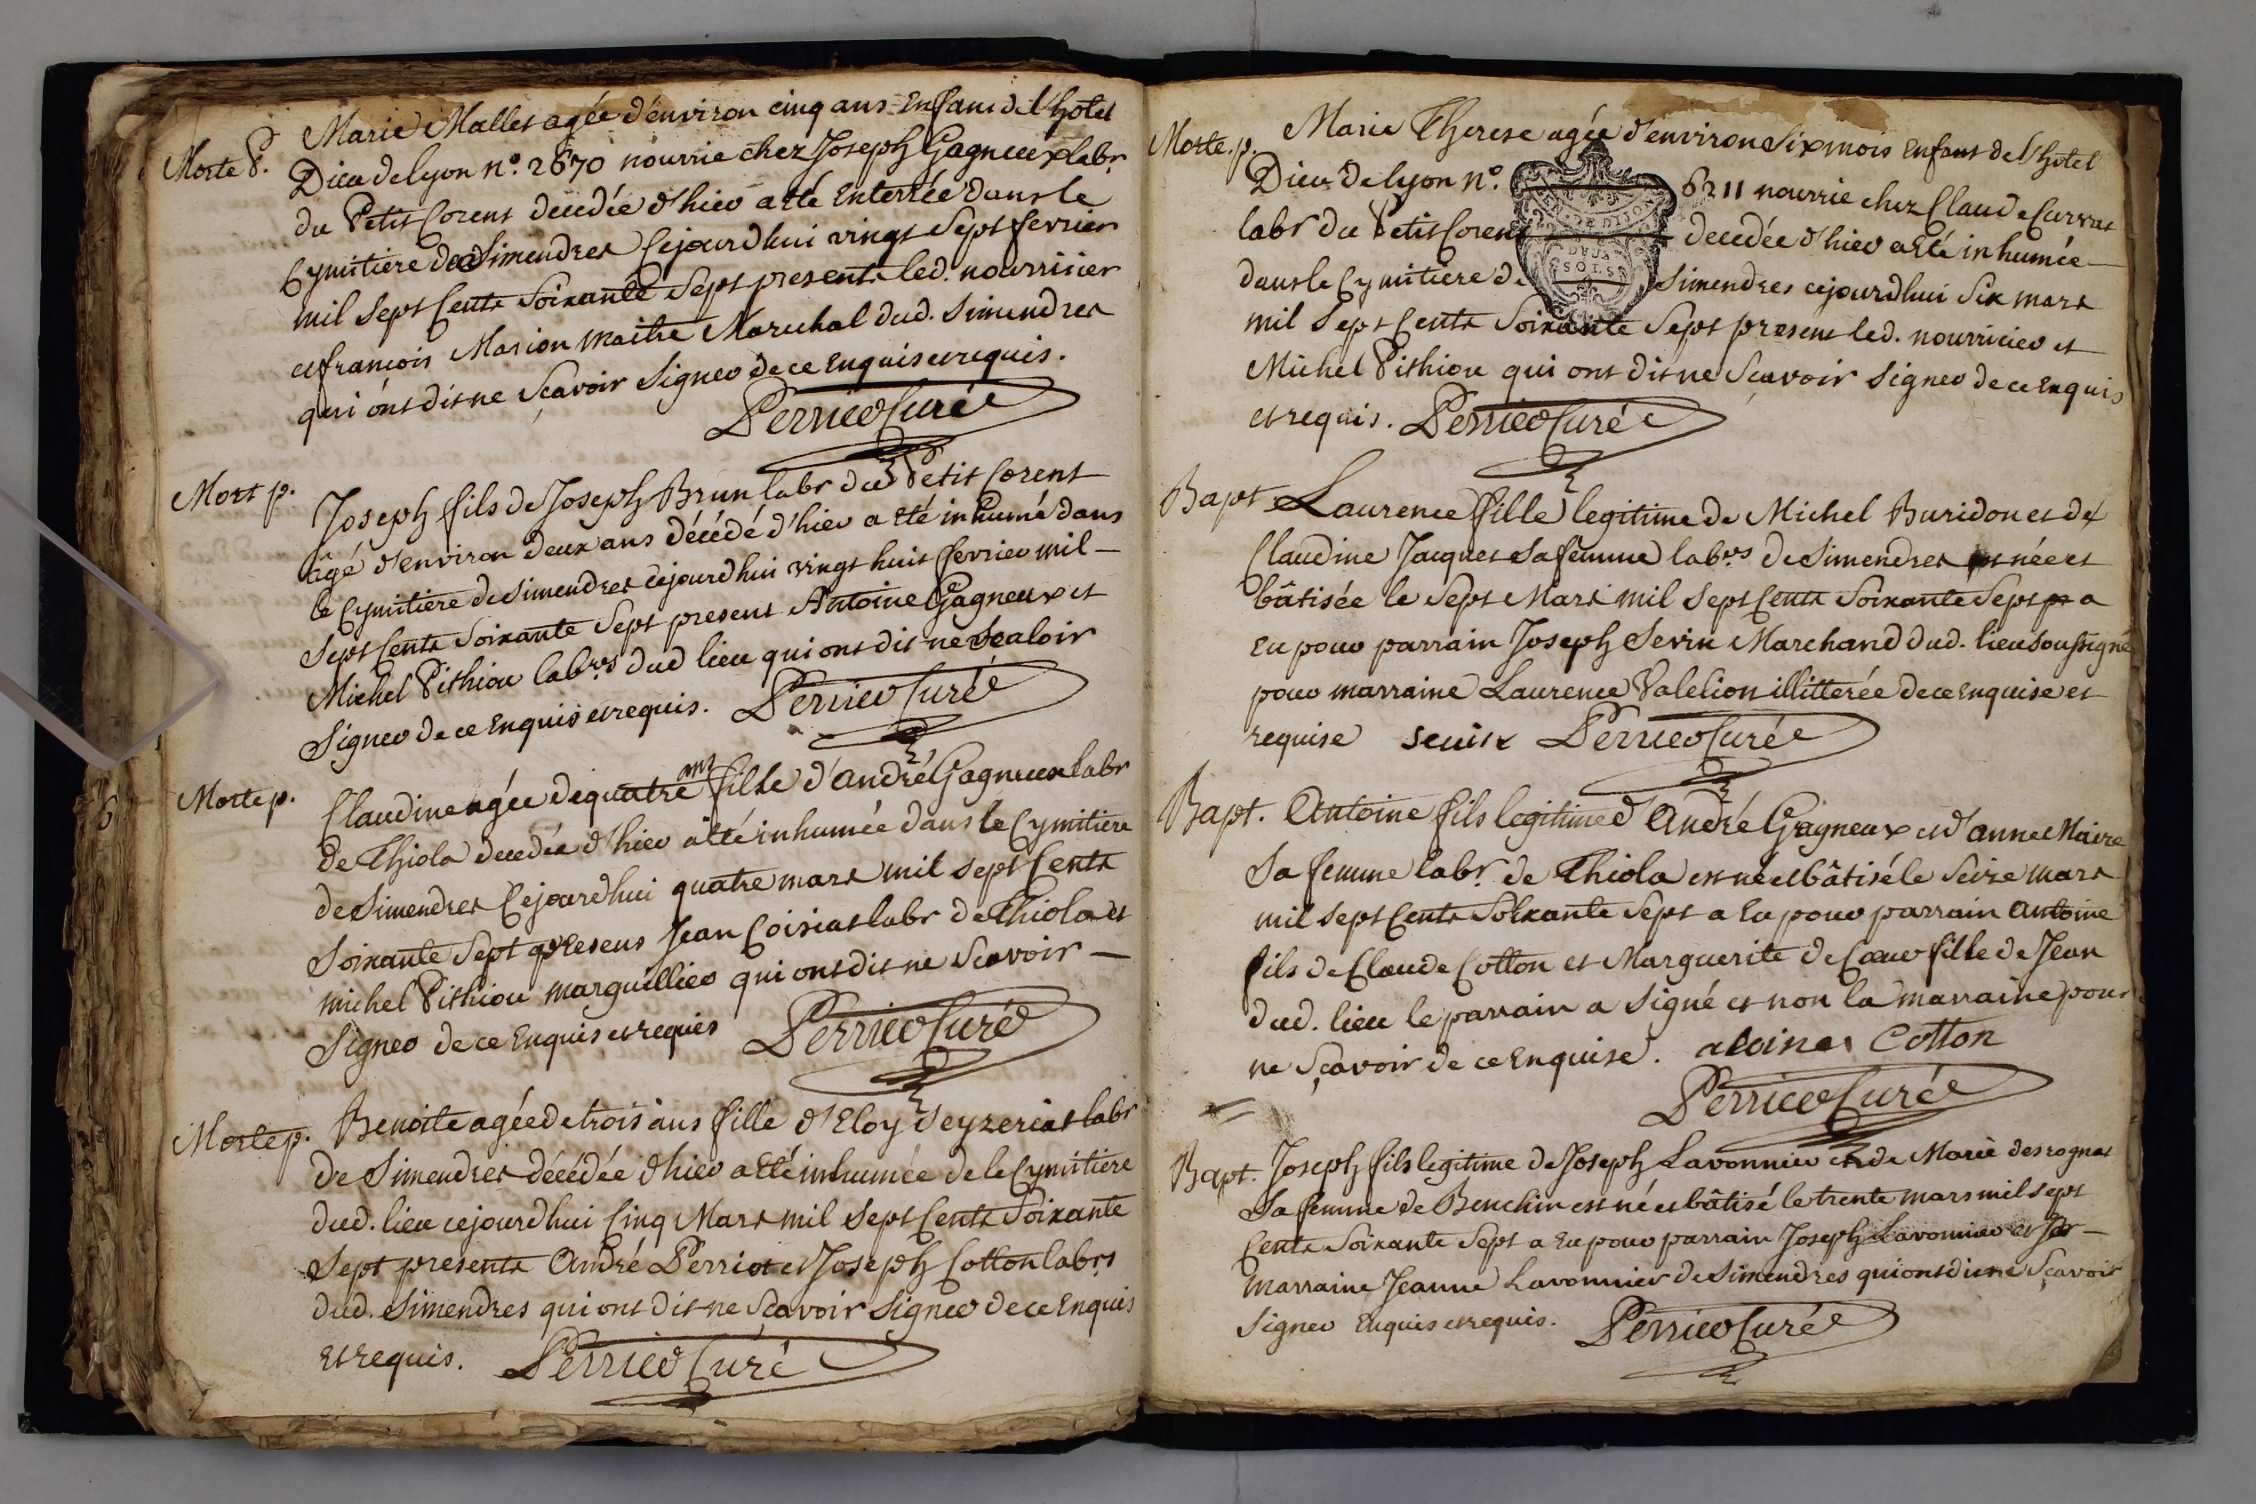 Morte P.
Marie Mallet agée d'environ cinq ans Enfant de l'hotel
Dieu de lyon n°. 2670 nourrie chez Joseph Gagneux labr
du Petit Corent decedée d'hier a eté Enterrée dans le
Cymitiere de Simendres Cejourd'hui vingt Sept fevrier
mil Sept Cents Soixante Sept presents led. nourricier
et francois Marion maitre Marechal dud. Simendres
qui ont dit ne Sçavoir Signer de ce Enquis et requis.
Perrier Curé
Mort p.
Joseph fils de Joseph Brun labr du Petit Corent
âgé d'environ deux ans décédé d'hier a eté inhumé dans
le Cymitiere de Simendres cejourd'hui vingt huit fevrier mil
Sept Cents Soixante Sept present Antoine Gagneux et
Michel Pithiou labrs dud lieu qui ont dit ne Scaloir
Signer de ce Enquis et requis. Perrier Curé
Morte p.
Claudine agée de quatre ans fille d'andré Gagneux labr
de Thiola decedée d'hier a eté inhumée dans le Cymitiere
de Simendres Cejourd'hui quatre mars mil Sept Cents
Soixante Sept presens Jean Coisiat labr de Thiola et
michel Pithiou marguillier qui ont dit ne Scavoir
Signer de ce Enquis et requis Perrier Curé
Morte p.
Benoite agée de trois ans fille d'Eloy Seyzeriat labr
de Simendres décédée d'hier a eté inhumée de le Cymitiere
dud. lieu cejourd'hui Cinq Mars mil Sept Cents Soixante
Sept presents André Perriot et Joseph Cotton labrs
dud. Simendres qui ont dit ne Sçavoir Signer de ce Enquis
et requis. Perrier Curé
Morte. p.
Marie Therese agée d'environ Six mois Enfant de l'hotel
Dieu de lyon n°. 6211 nourrie chez Claude Curvat
labr du Petit Corent decedée d'hier a eté inhumée
dans le Cymitiere de Simendres cejourd'hui Six mars
mil Sept Cents Soixante Sept present led. nourricier et
Michel Pithiou qui ont dit ne Sçavoir Signer de ce Enquis
et requis. Perrier Curé
Bapt. Laurence fille legitime de Michel Buridon et de
Claudine Jacquet Sa femme labrs de Simendres est née et
bâtisée le Sept Mars mil Sept Cents Soixante Sept a
Eu pour parrain Joseph Sevin Marchand dud. lieu Soussigné
pour marraine Laurence Valelion illitterée de ce Enquise et
requise Perrier Curé
Bapt. Antoine fils legitime d'André Gagneux et d'anne Maire
Sa femme labr. de Thiola est né et bâtisé le Seize mars
mil Sept Cents Soixante Sept a Eu pour parrain Antoine
fils de Claude Cotton et Marguerite de Cœur fille de Jean
dud. lieu le parrain a Signé et non la marraine pour
ne Sçavoir de ce Enquise. Cotton
Perrier Curé
Bapt. Joseph fils legitime de Joseph Lavonnier et de Marie desrognat
Sa femme de Benchin est né et bâtisé le trente mars mil Sept
Cents Soixante Sept a Eu pour parrain Joseph Lavonnier et
marraine Jeanne Lavonnier de Simendres qui ont dit ne Sçavoir
Signer Enquis et requis. Perrier Curé